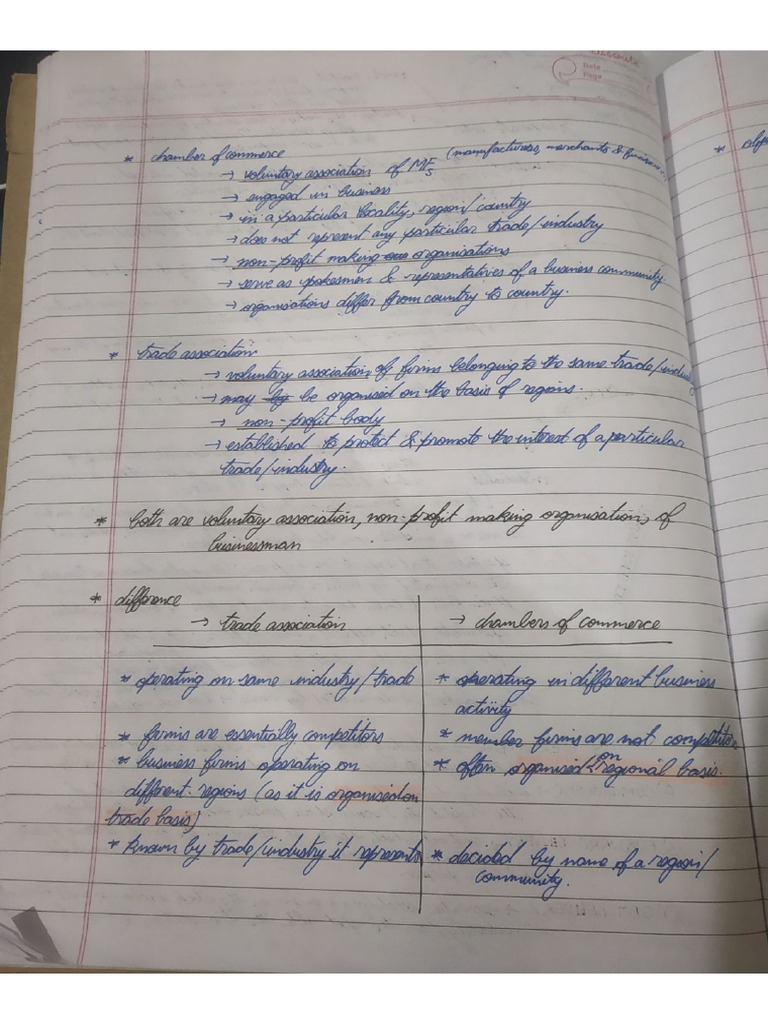 Date
Page
* chamber of commerce
→ voluntary association of MFs (manufacturers, merchants &
→ engaged in business
→ in a particular locality, region/country
→ does not represent any particular trade/industry
→ non-profit making organisations
→ serve as spokesmen & representatives of a business community
→ organisations differ from country to country.
* trade association
→ voluntary association of firms belonging to the same trade/industry
→ may be organised on the basis of regions.
→ non-profit body
→ established to protect & promote the interest of a particular
trade/industry.
* both are voluntary association, non-profit making organisation, of
businessman
* difference
→ trade association
→ chambers of commerce
* operating on same industry/trade
* operating in different business
activity
* firms are essentially competitors
* member firms are not competitors
* business firms operating on
different regions (as it is organised on
trade basis)
* often organised on regional basis.
* known by trade/industry it represents
* decided by name of a region/
community.